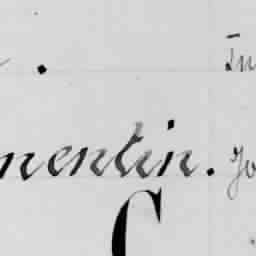 . In
nentin. Jo
C